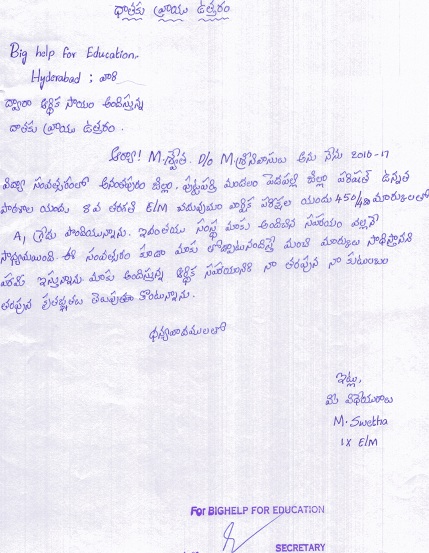 దాతకు వ్రాయు ఉత్తరం
Big help for Education.
Hyderabad ; వారి
ద్వారా ఆర్థిక సాయం అందిస్తున్న
దాతకు వ్రాయు ఉత్తరం.
ఆర్యా! M.శ్వేత. D/o M.శ్రీనివాసులు అను నేను 2016-17
విద్యా సంవత్సరంలో అనంతపురం జిల్లా, పుట్టపర్తి మండలం పెడపల్లి జిల్లా పరిషత్ ఉన్నత
పాఠశాల యందు 8వ తరగతి E/M చదువుచూ వార్షిక పరీక్షల యందు 450/ మార్కులతో
A, గ్రేడు పొందియున్నాను. ఇదంతయు సంస్థ మాకు అందించిన సహాయం వల్లనే
సాధ్యమయింది. ఈ సంవత్సరం కూడా మాకు తోడ్పాటునందిస్తే మంచి మార్కులు సాధిస్తానని
ఇస్తున్నాను మాకు అందిస్తున్న ఆర్థిక సహాయానికి నా తరపున నా కుటుంబం
తరపున కృతజ్ఞతలు తెలుపుతూ కొంటున్నాను.
ధన్యవాదములతో
ఇట్లు,
మీ విధేయురాలు
M. Swetha
IX E/M
For BIGHELP FOR EDUCATION
SECRETARY